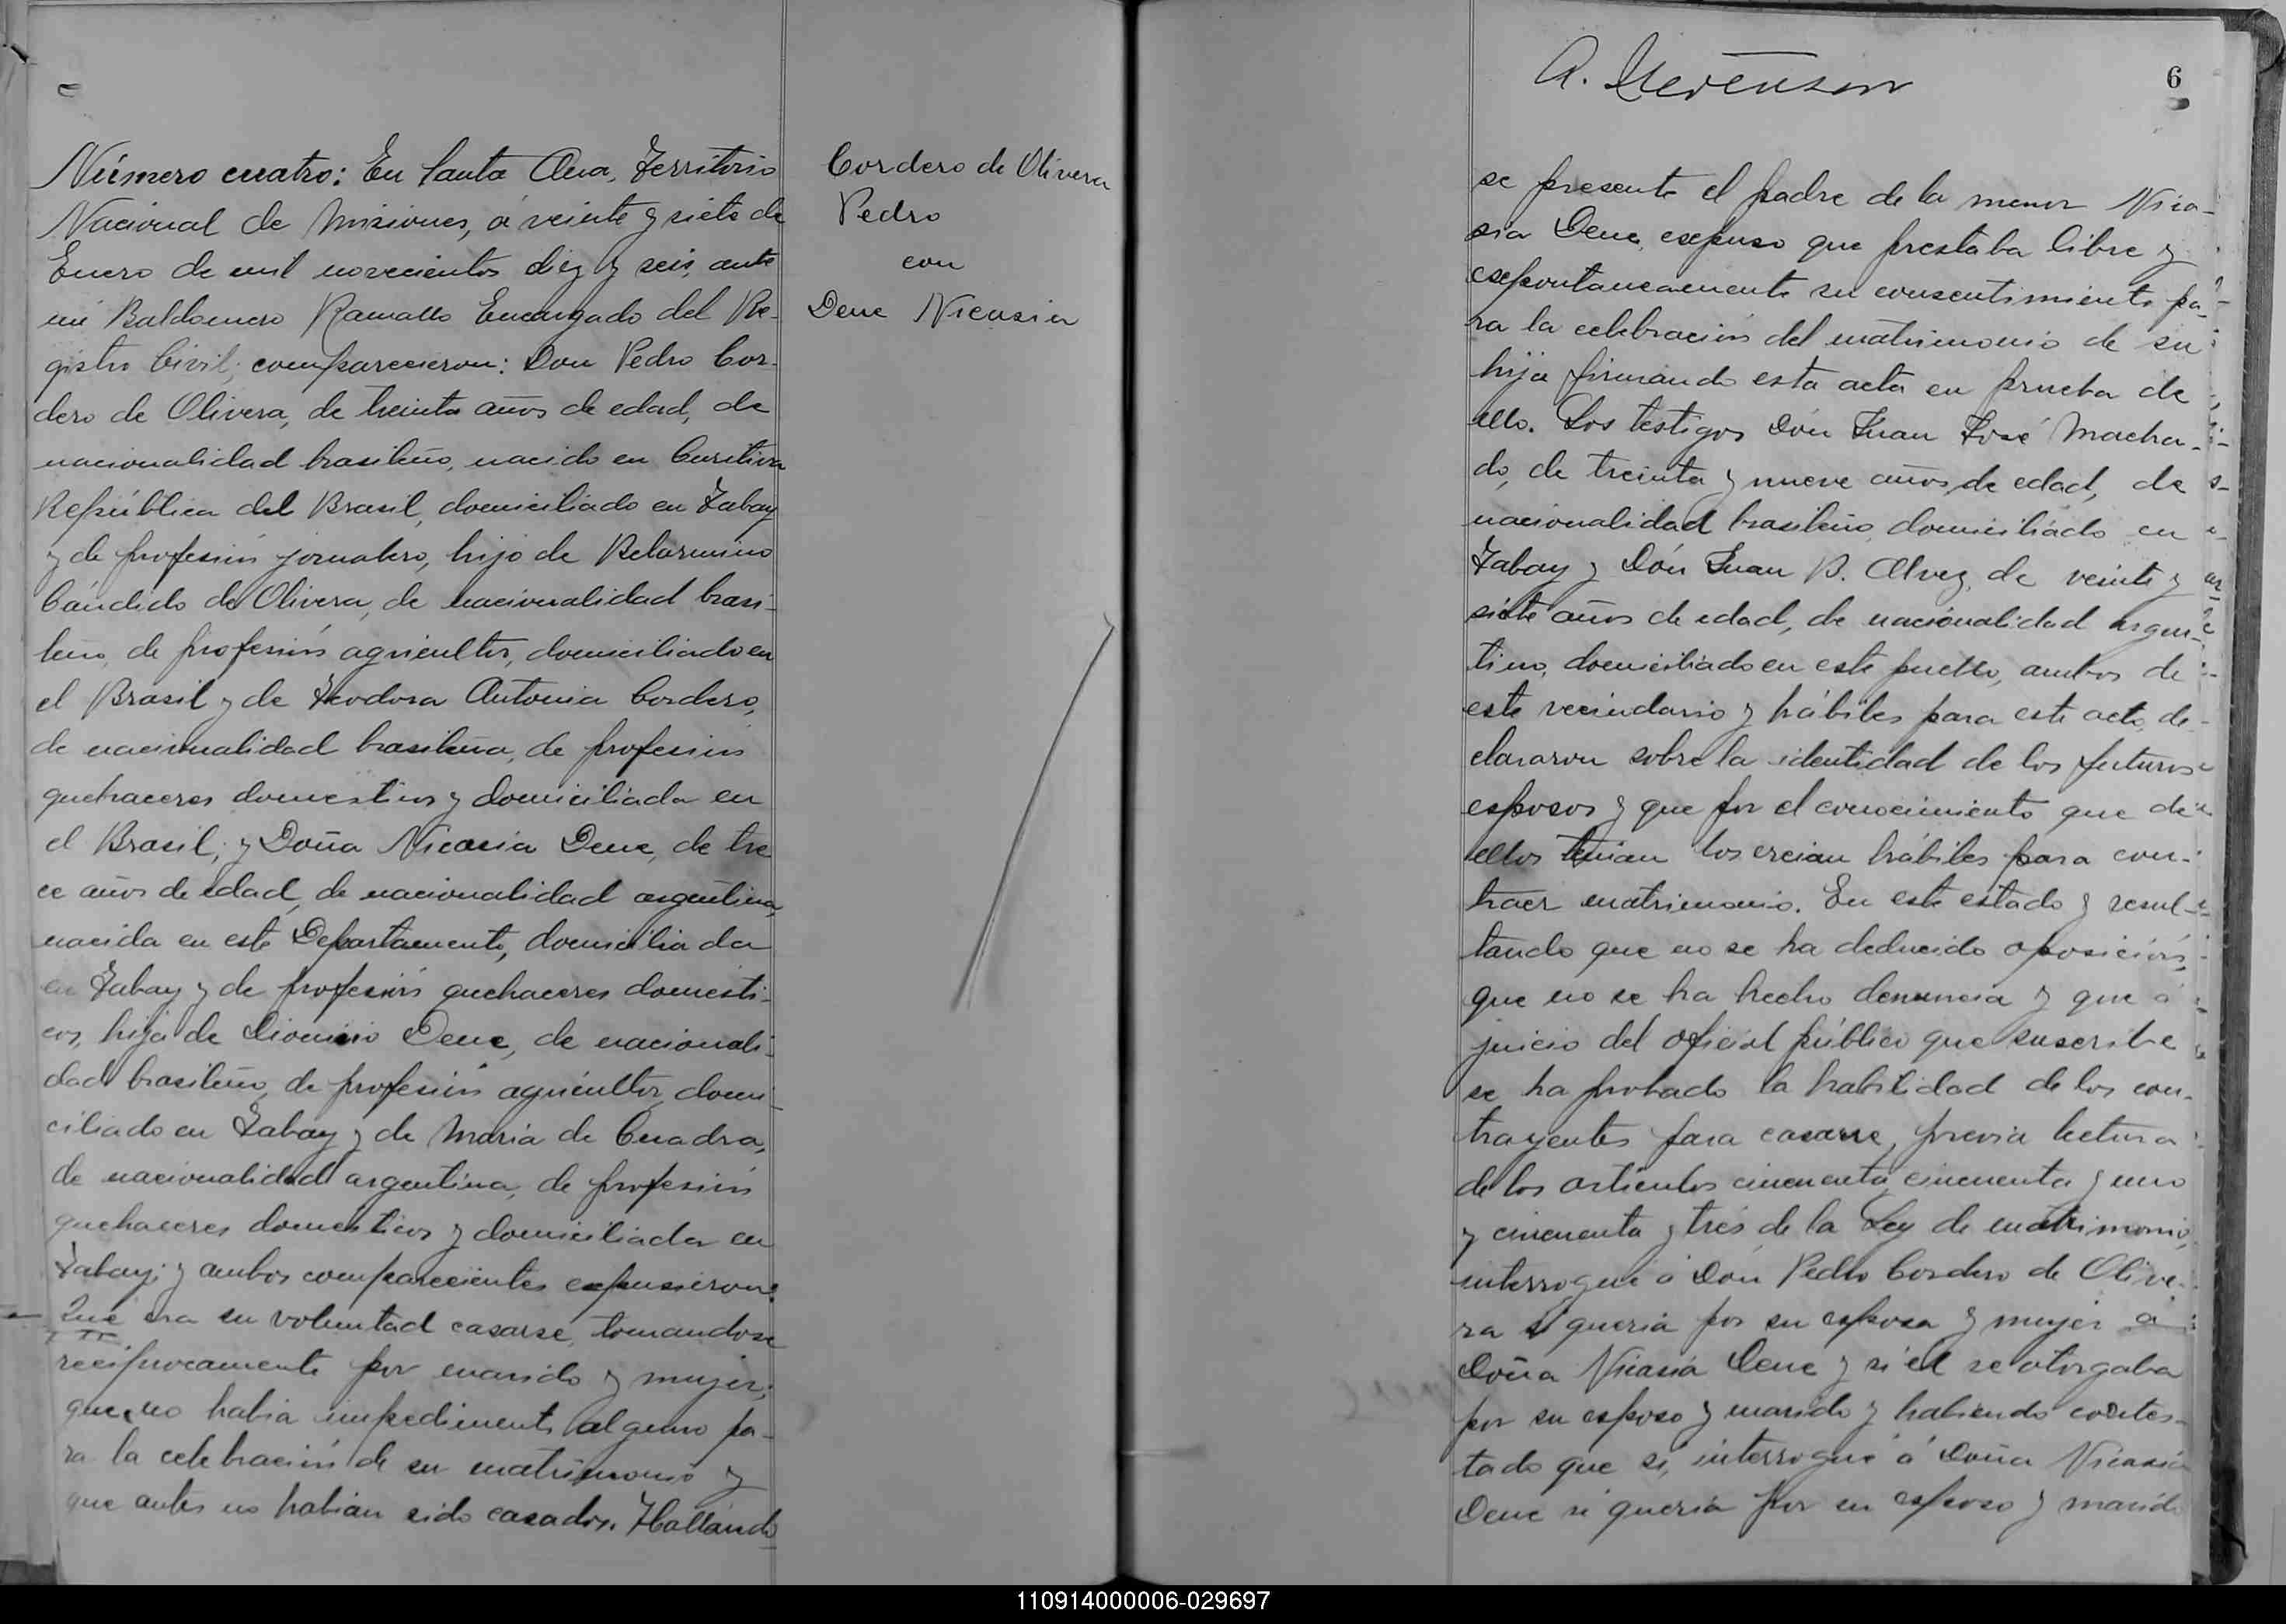 Número cuatro: En Santa Ana, Territorio
Nacional de Misiones, á veinte y siete de
Enero de mil novecientos diez y seis, ante
mi Baldomero Ramallo Encargado del Re-
gistro Civil; comparecieron: Don Pedro Cor-
dero de Olivera, de treinta años de edad, de
nacionalidad brasileño, nacido en Curitiva
República del Brasil, domiciliado en Yabay
y de profesión jornalero, hijo de Belarmino
Cándido de Olivera, de nacionalidad brasi-
leño, de profesión agricultor, domiciliado en
el Brasil y de Teodora Antonia Cordero,
de nacionalidad brasileña, de profesión
quehaceres domesticos y domiciliada en
el Brasil; y Doña Nicasia Dene, de tre
ce años de edad, de nacionalidad argentina,
nacida en este Departamento, domiciliada
en Yabay y de profesión quehaceres domésti-
cos, hija de Dionisio Dene, de nacionali-
dad brasileño, de profesión agricultor, domi-
ciliado en Yabay y de Maria de Cuadra,
de nacionalidad argentina, de profesión
quehaceres domésticos y domiciliada en
Yabay; y ambos comparecientes expusieron:
Que era su voluntad casarse, tomandose
reciprocamente por marido y mujer;
que no habia impedimento alguno pa-
ra la celebración de su matrimonio y
que antes no habian sido casados. Hallándo
Cordero de Olivera
Pedro
con
Dene Nicasia
A. Stevenson
6
se presente el padre de la menor Nica-
sia Dene, esepuso que prestaba libre y
esepontaneamente su consentimiento pa-
ra la celebración del matrimonio de su
hija firmando esta acta en prueba de
ello. Los testigos Dón Juan José Macha-
do, de treinta y nueve años de edad, de
nacionalidad brasileño, domiciliado en
Yabay y Dón Juan B. Alvez, de veinte y
siete años de edad, de nacionalidad argen-
tino, domiciliado en este pueblo, ambos de
este vecindario y hábiles para este acto, de-
clararon sobre la identidad de los futuros
esposos y que por el conocimiento que de
ellos tenian los creian hábiles para con-
traer matrimonio. En este estado y resul-
tando que no se ha deducido oposición,
que no se ha hecho denuncia y que á
juicio del oficial público que suscribe
se ha probado la habilidad de los con-
trayentes para casarse, previa lectura
de los articulos cincuenta, cincuenta y uno
y cincuenta y tres de la Ley de matrimonio,
interrogué á Dón Pedro Cordero de Olive-
ra si queria por su esposa y mujer á
Doña Nicasia Dene y si él se otorgaba
por su esposo y marido y habiendo contes-
tado que si, interrogué á Doña Nicasia
Dene si queria por su esposo y marido
110914000006-029697